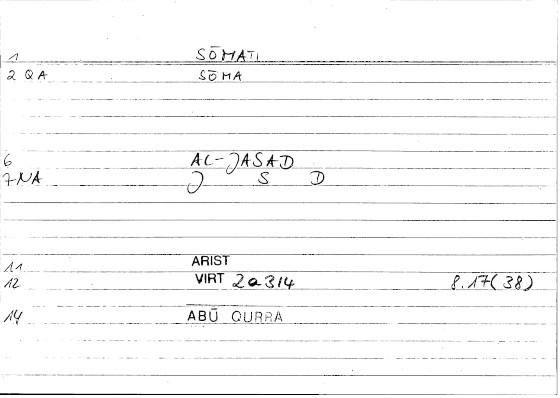 1 SŌMATI
2 QA SŌMA
6 AL-JASAD
7 NA J S D
11 ARIST
12 VIRT 2a314 8.17(38)
14 ABŪ QURRA